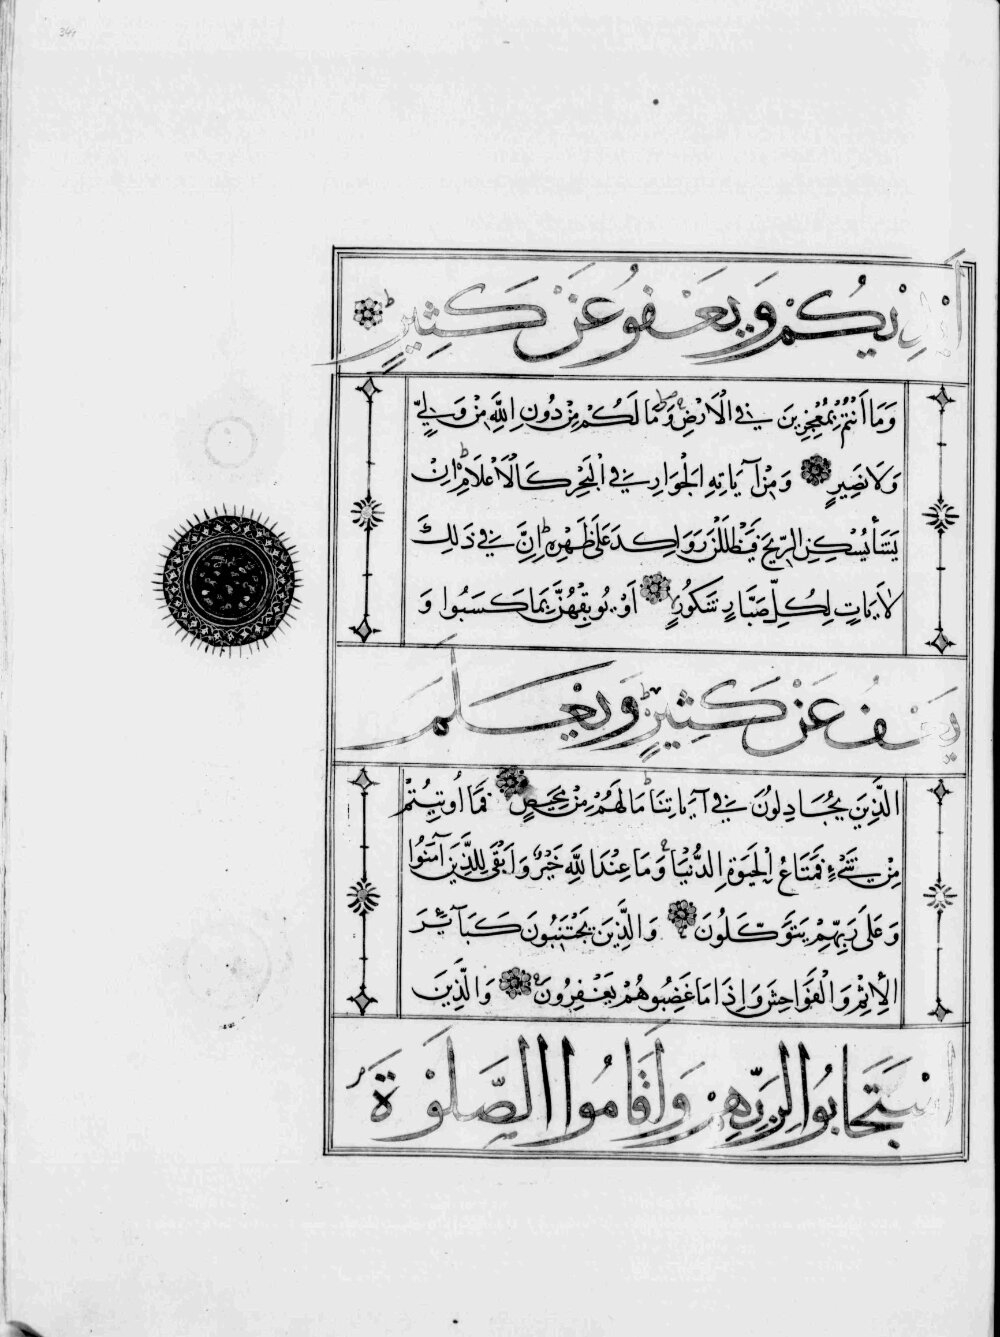 أَيْدِيكُمْ وَيَعْفُو عَنْ كَثِيرٍ
وَمَا أَنْتُمْ بِمُعْجِزِينَ فِي الْأَرْضِ وَمَا لَكُمْ مِنْ دُونِ اللَّهِ مِنْ وَلِيٍّ
وَلَا نَصِيرٍ وَمِنْ آيَاتِهِ الْجَوَارِ فِي الْبَحْرِ كَالْأَعْلَامِ إِنْ
يَشَأْ يُسْكِنِ الرِّيحَ فَيَظْلَلْنَ رَوَاكِدَ عَلَى ظَهْرِهِ إِنَّ فِي ذَلِكَ
لَآيَاتٍ لِكُلِّ صَبَّارٍ شَكُورٍ أَوْ يُوبِقْهُنَّ بِمَا كَسَبُوا وَ
يَعْفُ عَنْ كَثِيرٍ وَيَعْلَمَ
الَّذِينَ يُجَادِلُونَ فِي آيَاتِنَا مَا لَهُمْ مِنْ مَحِيصٍ فَمَا أُوتِيتُمْ
مِنْ شَيْءٍ فَمَتَاعُ الْحَيَوةِ الدُّنْيَا وَمَا عِنْدَ اللَّهِ خَيْرٌ وَأَبْقَى لِلَّذِينَ آمَنُوا
وَعَلَى رَبِّهِمْ يَتَوَكَّلُونَ وَالَّذِينَ يَجْتَنِبُونَ كَبَآئِرَ
الْإِثْمِ وَالْفَوَاحِشَ وَإِذَا مَا غَضِبُوا هُمْ يَغْفِرُونَ وَالَّذِينَ
اسْتَجَابُوا لِرَبِّهِمْ وَأَقَامُوا الصَّلَوةَ